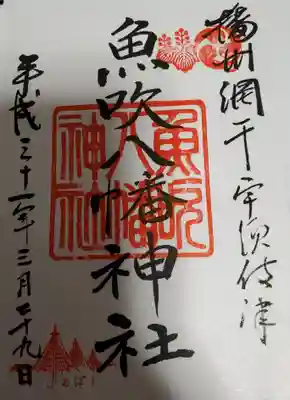 播州網干宇須伎津
魚吹八幡神社
魚吹八幡神社
平成三十一年三月二十九日